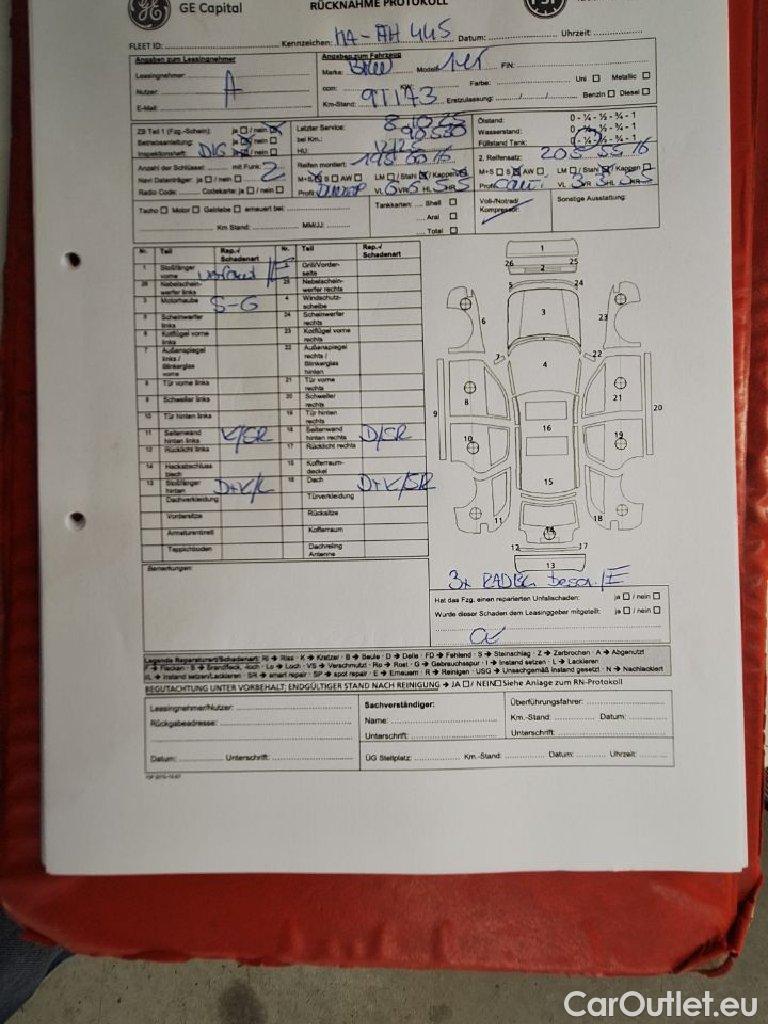 GE Capital
RÜCKNAHME PROTOKOLL
FLEET ID: Kennzeichen: MA-AH 445 Datum: Uhrzeit:
Angaben zum Leasingnehmer
Leasingnehmer:
Nutzer: A
E-Mail:
Angaben zum Fahrzeug
Marke: Modell: 1er FIN:
ccm: Farbe: Uni Metallic
Km-Stand: 91173 Erstzulassung: / / Benzin Diesel
ZB Teil 1 (Fzg.-Schein): ja / nein
Betriebsanleitung: ja / nein
Inspektionsheft: DIG / nein
Anzahl der Schlüssel: mit Funk: 2
Navi Datenträger: ja / nein
Radio Code: Codekarte: ja / nein
Letzter Service:
bei Km.:
HU: 12/25
Reifen montiert: 195 60 16
M+S S AW LM / Stahl / Kappen
Profil: DUNLOP VL 6 VR 6 HL 5,5 HR 5,5
Ölstand: 0 - ¼ - ½ - ¾ - 1
Wasserstand: 0 - ¼ - ½ - ¾ - 1
Füllstand Tank: 0 - ¼ - ½ - ¾ - 1
2. Reifensatz: 205 55 16
M+S S AW LM / Stahl / Kappen
Tacho Motor Getriebe erneuert bei:
Km Stand: MM/JJ:
Tankkarten: Shell
Aral
Total
Voll-/Notrad/
Kompressor:
Sonstige Ausstattung:
Nr. Teil Rep.-/ Schadenart Nr. Teil Rep.-/ Schadenart
1 Stoßfänger vorne /E Grill/Vorderseite
26 Nebelscheinwerfer links 25 Nebelscheinwerfer rechts
3 Motorhaube S-G 4 Windschutzscheibe
5 Scheinwerfer links 24 Scheinwerfer rechts
6 Kotflügel vorne links 23 Kotflügel vorne rechts
7 Außenspiegel links / Blinkerglas vorne 22 Außenspiegel rechts / Blinkerglas hinten
8 Tür vorne links 21 Tür vorne rechts
9 Schweller links 20 Schweller rechts
10 Tür hinten links 19 Tür hinten rechts
11 Seitenwand hinten links K/SR 18 Seitenwand hinten rechts D/SR
12 Rücklicht links 17 Rücklicht rechts
14 Heckabschlussblech 15 Kofferraumdeckel
13 Stoßfänger hinten D+K/L 16 Dach D+K/SR
Dachverkleidung Türverkleidung
Vordersitze Rücksitze
Armaturenbrett Kofferraum
Teppichboden Dachreling Antenne
Bemerkungen:
1
26 25
2
5 24
6 3 23
7 22
4
8 21
9 20
16
10 19
15
11 18
14
12 17
13
3x RÄDER besch./E
Hat das Fzg. einen reparierten Unfallschaden: ja / nein
Wurde dieser Schaden dem Leasinggeber mitgeteilt: ja / nein
Legende Reparaturart/Schadenart: RI → Riss · K → Kratzer · B → Beule · D → Delle · FD → Fehlend · S → Steinschlag · Z → Zerbrochen · A → Abgenutzt
F → Flecken · B → Brandfleck, -loch · Lo → Loch · VS → Verschmutzt · Ro → Rost · G → Gebrauchsspur · I → Instand setzen · L → Lackieren
IL → Instand setzen/Lackieren · SR → smart repair · SP → spot repair · E → Erneuern · R → Reinigen · USG → Unsachgemäß instand gesetzt · N → Nachlackiert
BEGUTACHTUNG UNTER VORBEHALT; ENDGÜLTIGER STAND NACH REINIGUNG → JA / NEIN Siehe Anlage zum RN-Protokoll
Leasingnehmer/Nutzer:
Rückgabeadresse:
Datum: Unterschrift:
Sachverständiger:
Name:
Unterschrift:
ÜG Stellplatz: Km.-Stand: Datum: Uhrzeit:
Überführungsfahrer:
Km.-Stand: Datum:
Unterschrift:
CarOutlet.eu